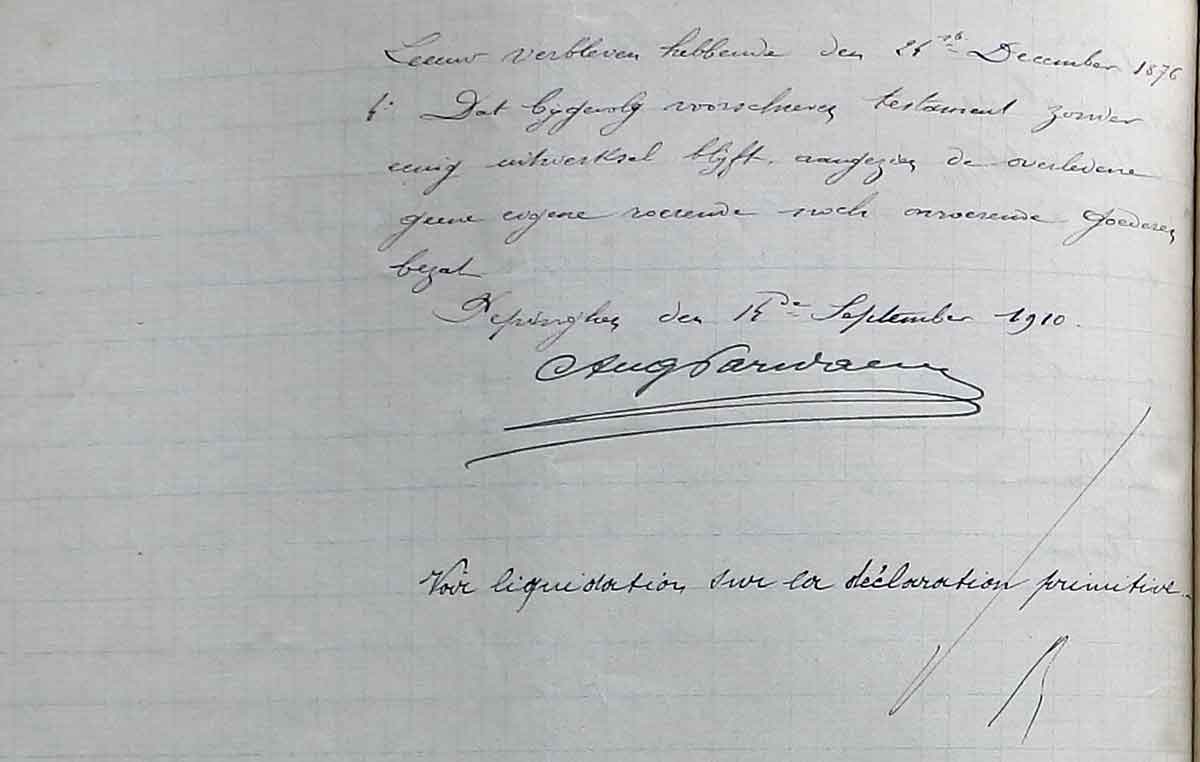 Leeuw verbleven hebbende den 26sten December 1876
f. Dat bijgevolg voorschreven testament zonder
eenig uitwerksel blijft, aangezien de overledene
geene eigene roerende noch onroerende goederen
bezat
Pepinghen den 15de September 1910.
Aug
Voir liquidation sur la déclaration primitive.